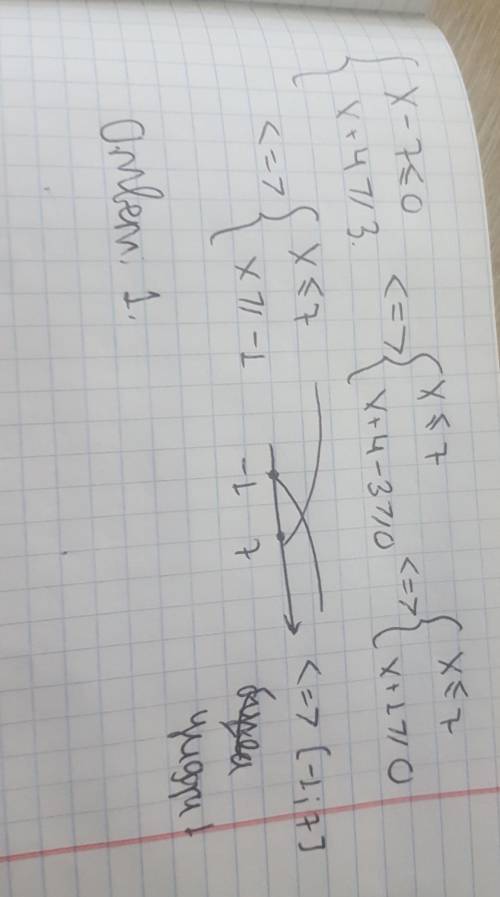 { x - 7 ≤ 0
{ x + 4 ⩾ 3.
<=> { x ≤ 7
{ x + 4 - 3 ⩾ 0
<=> { x ≤ 7
{ x + 1 ⩾ 0
<=> { x ≤ 7
{ x ⩾ -1
-1 7
<=> [-1; 7]
Ответ: 1.